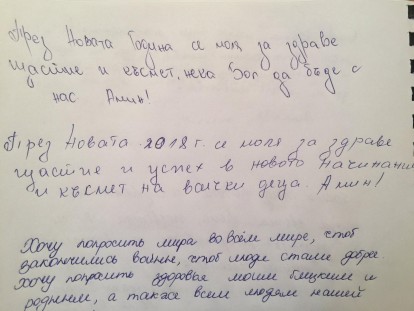 През Новата Година се моля за здраве
щастие и късмет, нека Бог да бъде с
нас Амин!
През Новата 2018 г. се моля за здраве
щастие и успех в новото начинани
и късмет на всички деца. Амин!
Хочу попросить мира во всём мире, чтоб
закончились войны, чтоб люди стали добрее.
Хочу попрасить здоровья моим близким и
родным, а также всем людям нашей